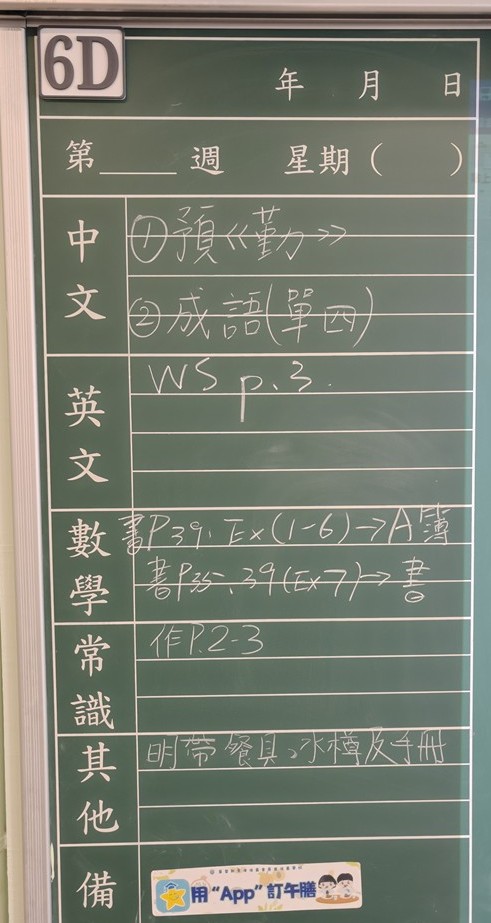 6D
年 月 日
第____週 星期( )
中文
①預《勤》
②成語(單四)
英文
WS p.3.
數學
書P39. Ex(1-6)→A簿
書P35、39(Ex7)→書。
常識
作P.2-3
其他
明帶餐具、水樽及手冊
備
用“App”訂午膳